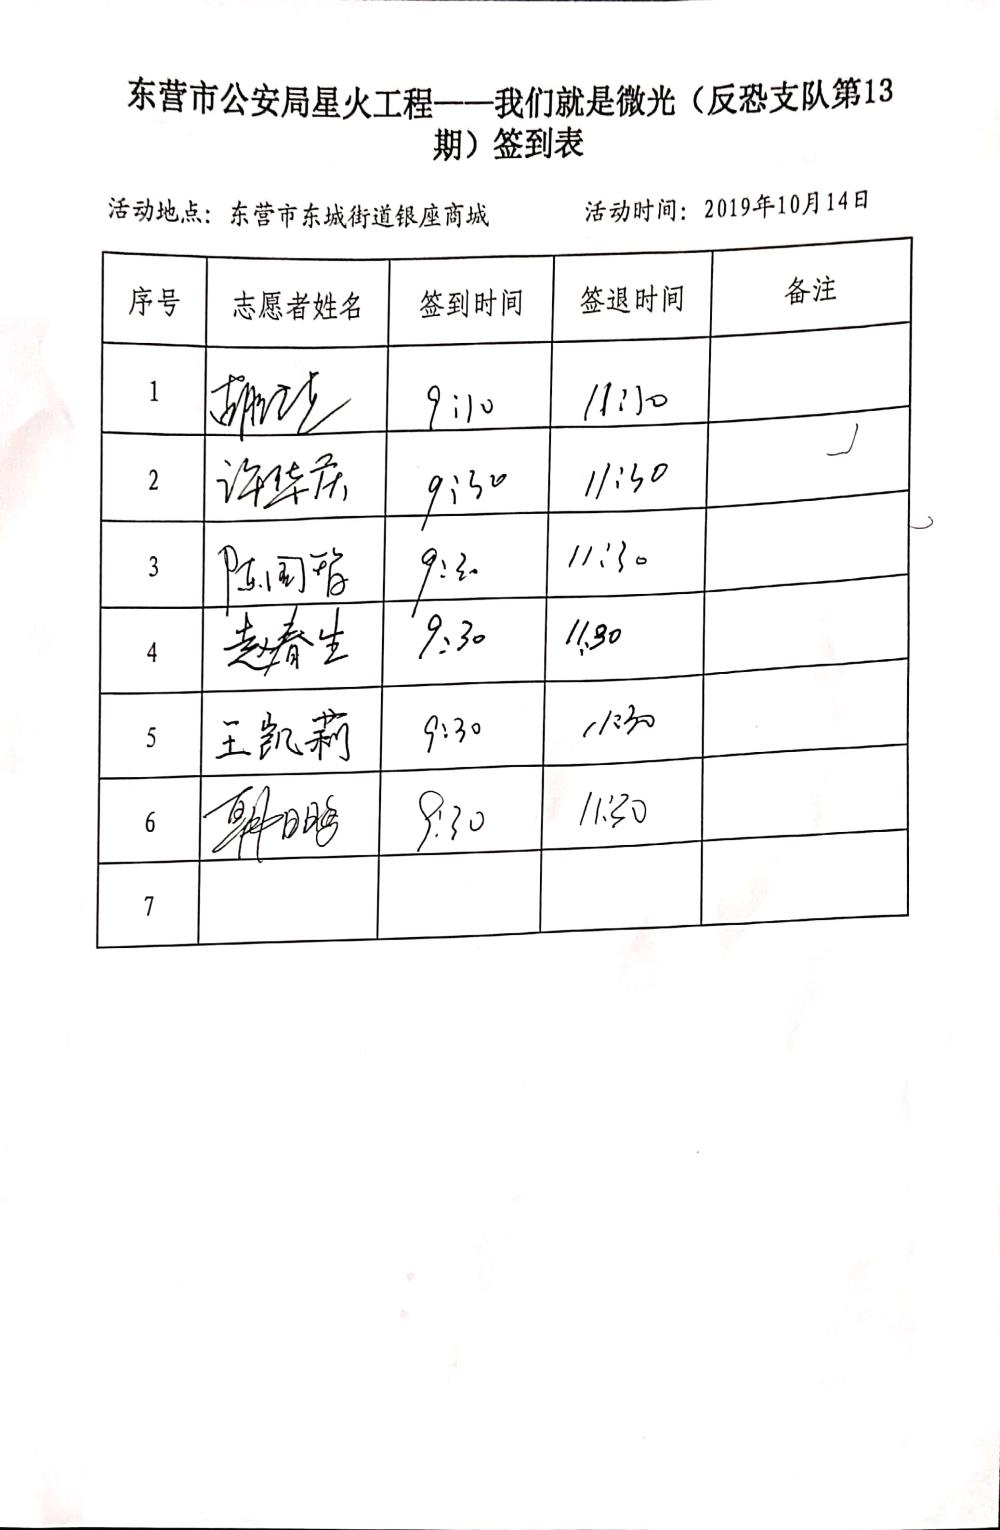 东营市公安局星火工程——我们就是微光（反恐支队第13
期）签到表
活动地点：东营市东城街道银座商城 活动时间：2019年10月14日
序号 志愿者姓名 签到时间 签退时间 备注
1 9:10 11:10
2 许华庆 9:30 11:30
3 陈国 9:30 11:30
4 赵春生 9:30 11:30
5 王凯莉 9:30 11:30
6 韩 9:30 11:30
7